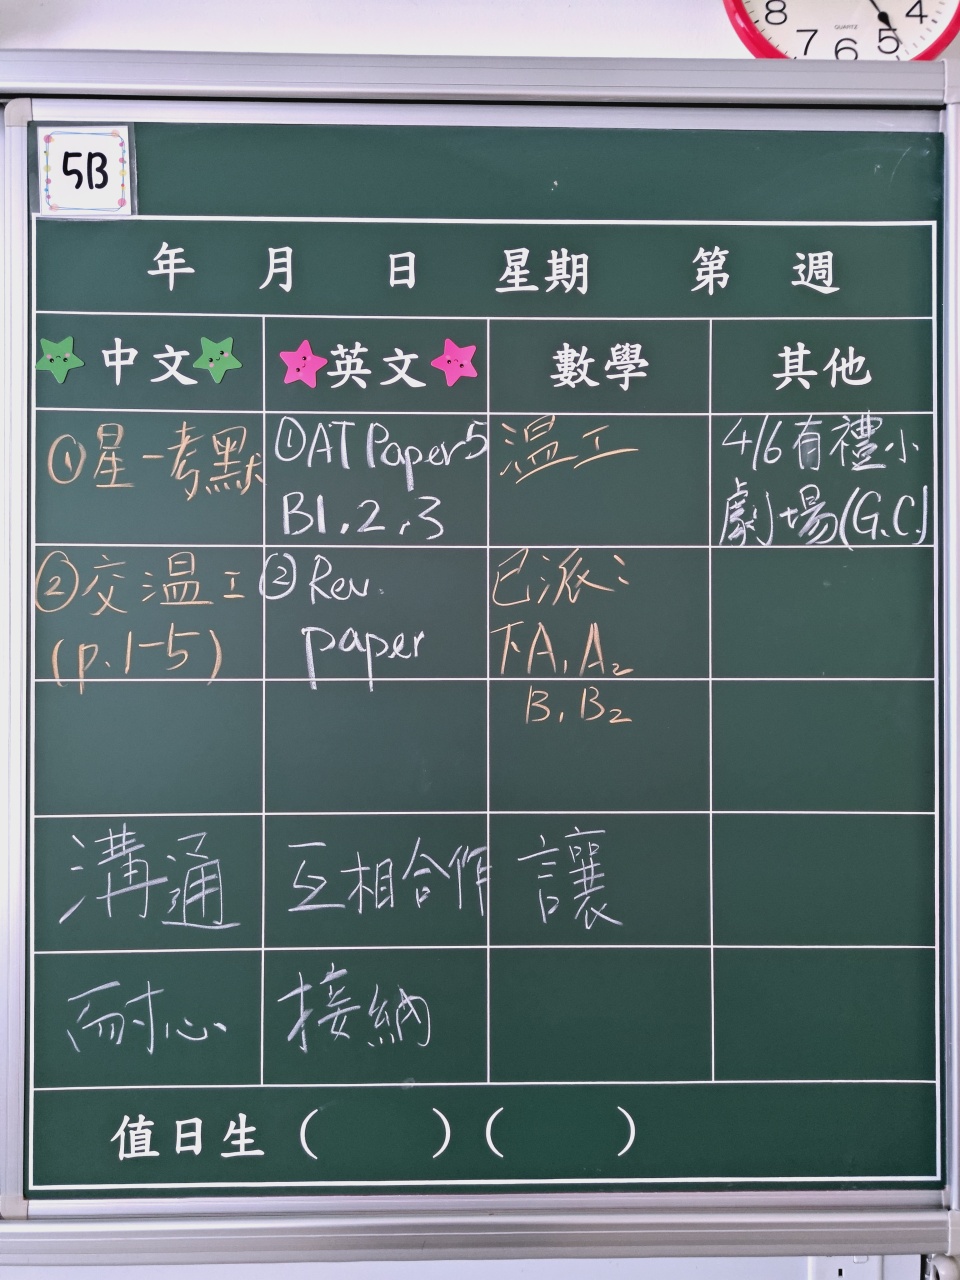 8 7 6 5 4
QUARTZ
5B
年 月 日 星期 第 週
中文 英文 數學 其他
①星一考默
①AT Paper 5
B1,2,3
溫工
4/6有禮小
劇場(G.C.)
②交溫工
(p.1-5)
②Rev.
paper
已派:
下A1 A2
B1 B2
溝通
互相合作
讓
耐心
接納
值日生 ( ) ( )